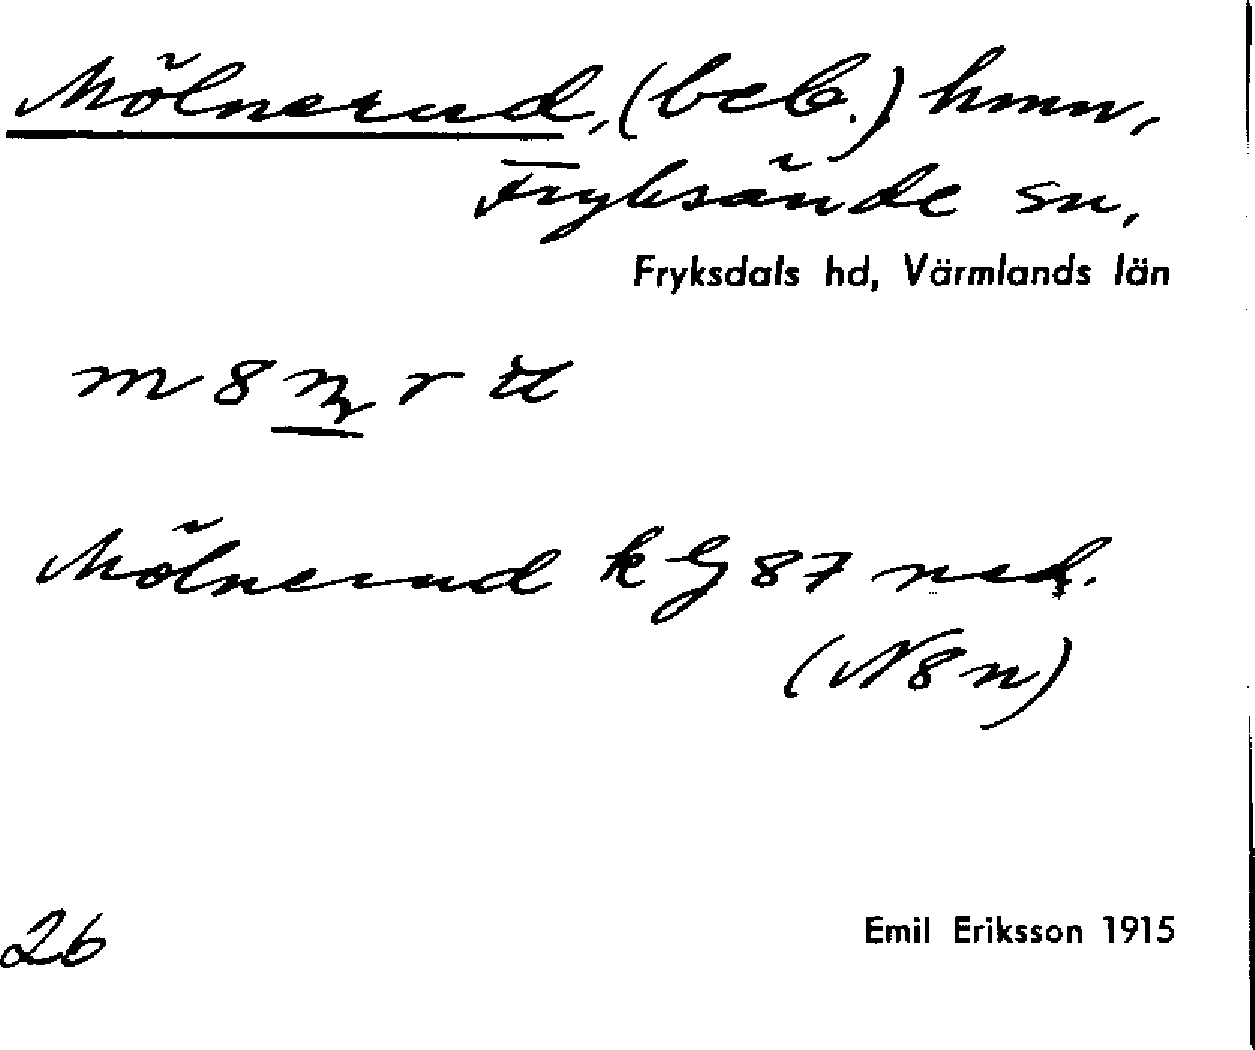 Mölnerud, (beb.) hmn,
Fryksände sn,
Fryksdals hd, Värmlands län
Mölnerud k G 87 ned.
(N8n)
26
Emil Eriksson 1915